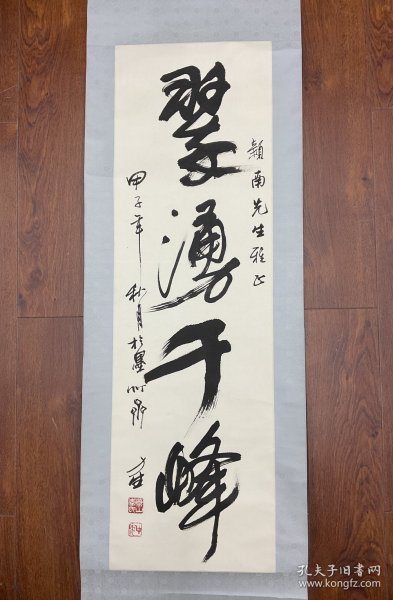 颖南先生雅正
翠涌千峰
甲子年秋月於墨
孔夫子旧书网
www.kongfz.com